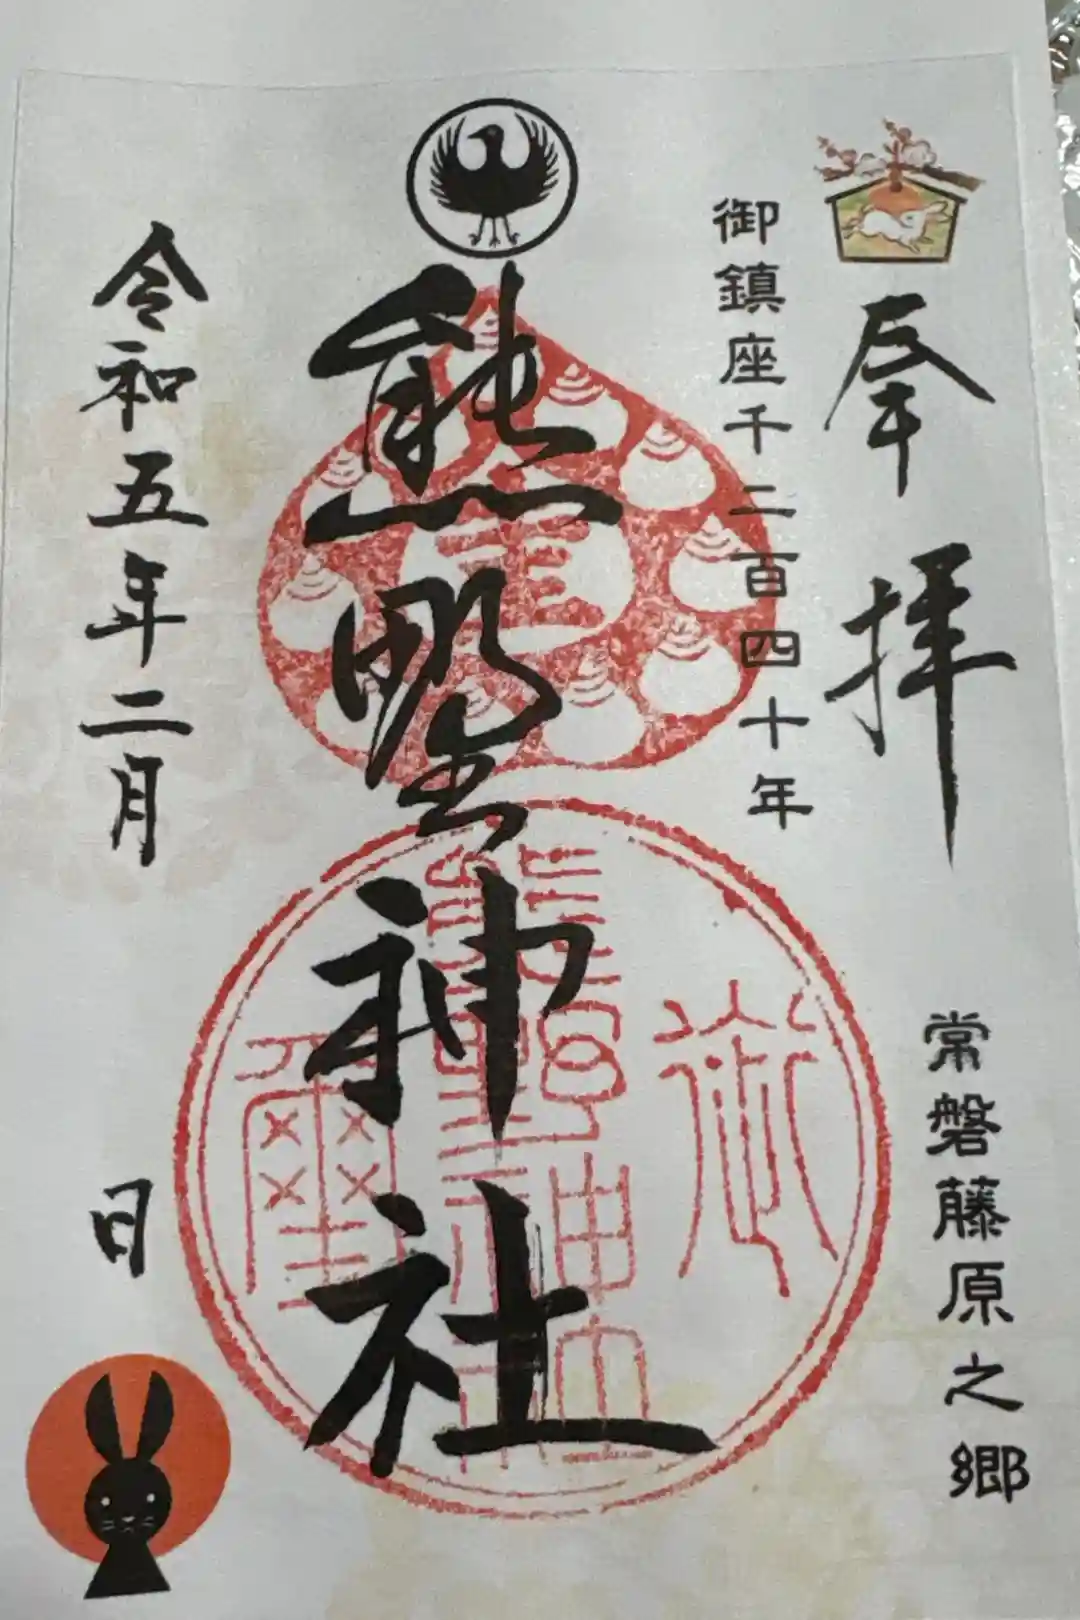 奉拝
御鎮座千二百四十年
常磐藤原之郷
熊野神社
令和五年二月
日